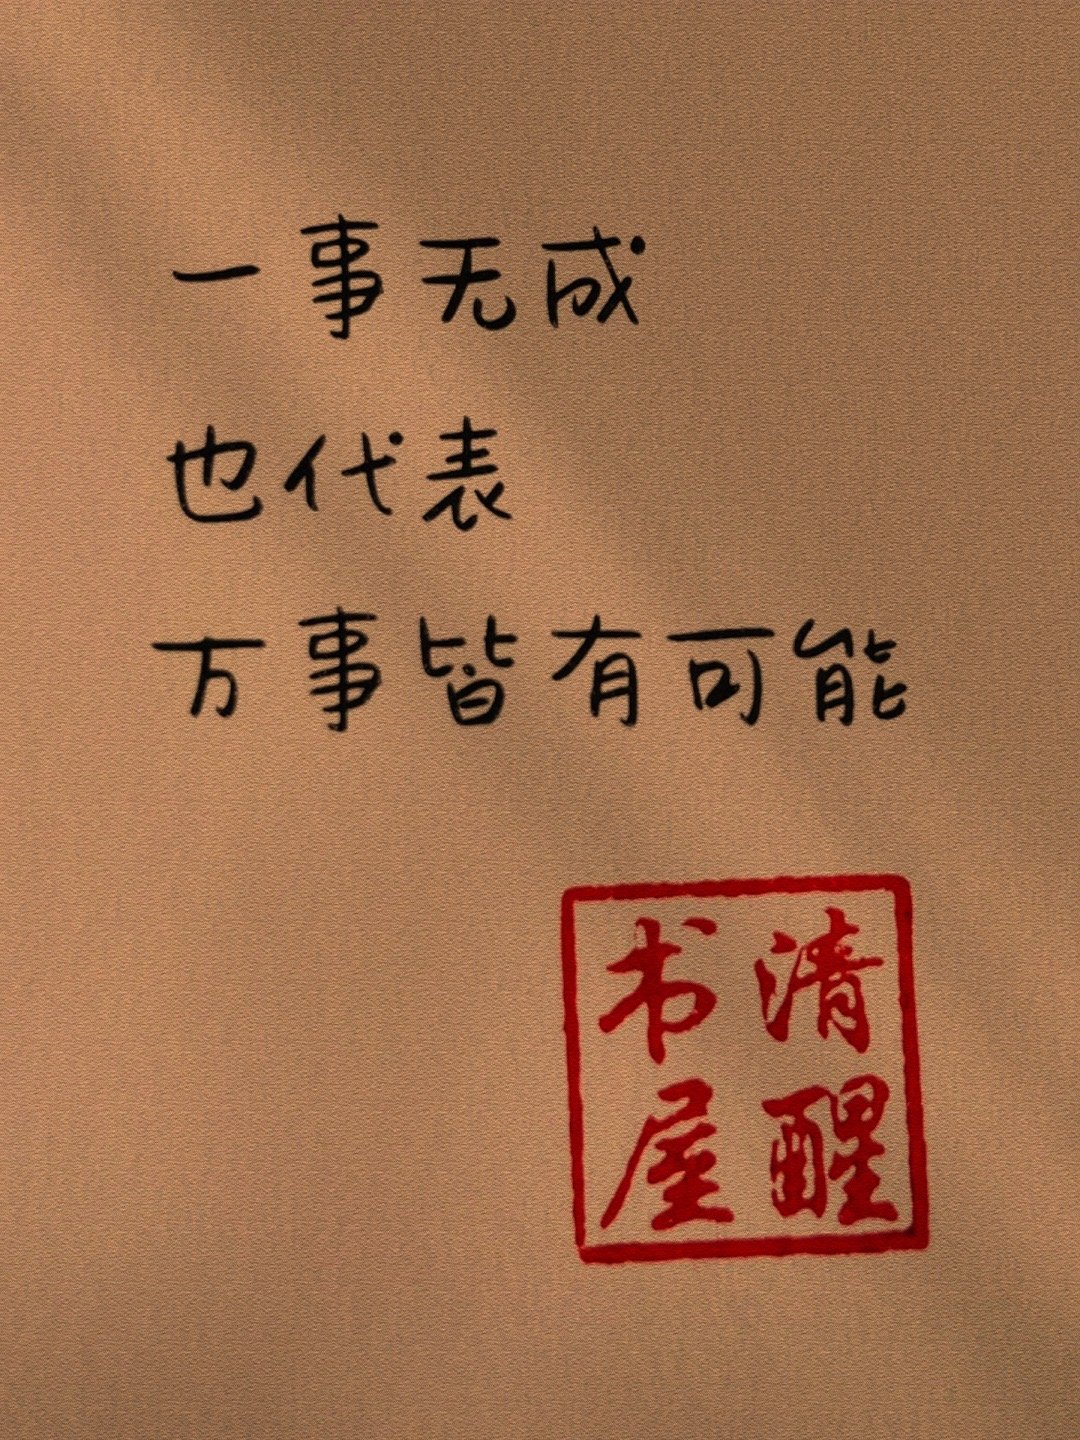 一事无成
也代表
万事皆有可能
清醒
书屋